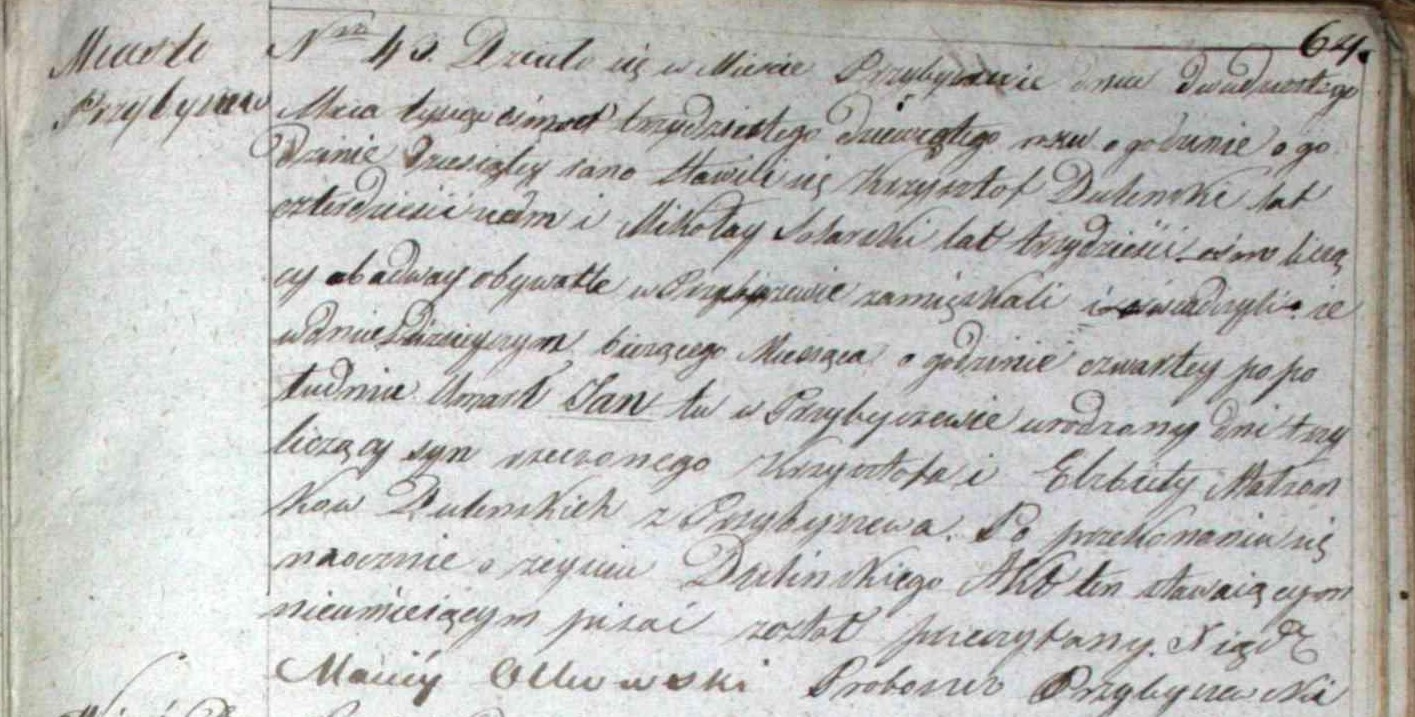 64.
Miasto Nro 43. Działo się w Mieście Przybyszewie dnia dwudziestego
Przybyszew Maia tysiąc ośmset trzydziestego dziewiątego roku o godzinie o go
dzinie dziesiątey rano stawili się Krzysztof Duliński lat
czterdzieści siedm i Mikołay Solarski lat trzydzieści ośm liczą
cy obadway obywatele w Przybyszewie zamięszkali i oświadczyli że
w dniu dzisieyszym bieżącego Miesiąca o godzinie czwartey po po
łudniu Umarł Jan tu w Przybyszewie urodzony dni trzy
liczący syn rzeczonego Krzysztofa i Elżbiety Małżon
ków Dulinskich z Przybyszewa. Po przekonaniu się
naocznie o zeyściu Dulinskiego Akt ten stawaiącym
nieumieiącym pisać został przeczytany. Xiądz
Maciéy Proboszcz Przybyszewski